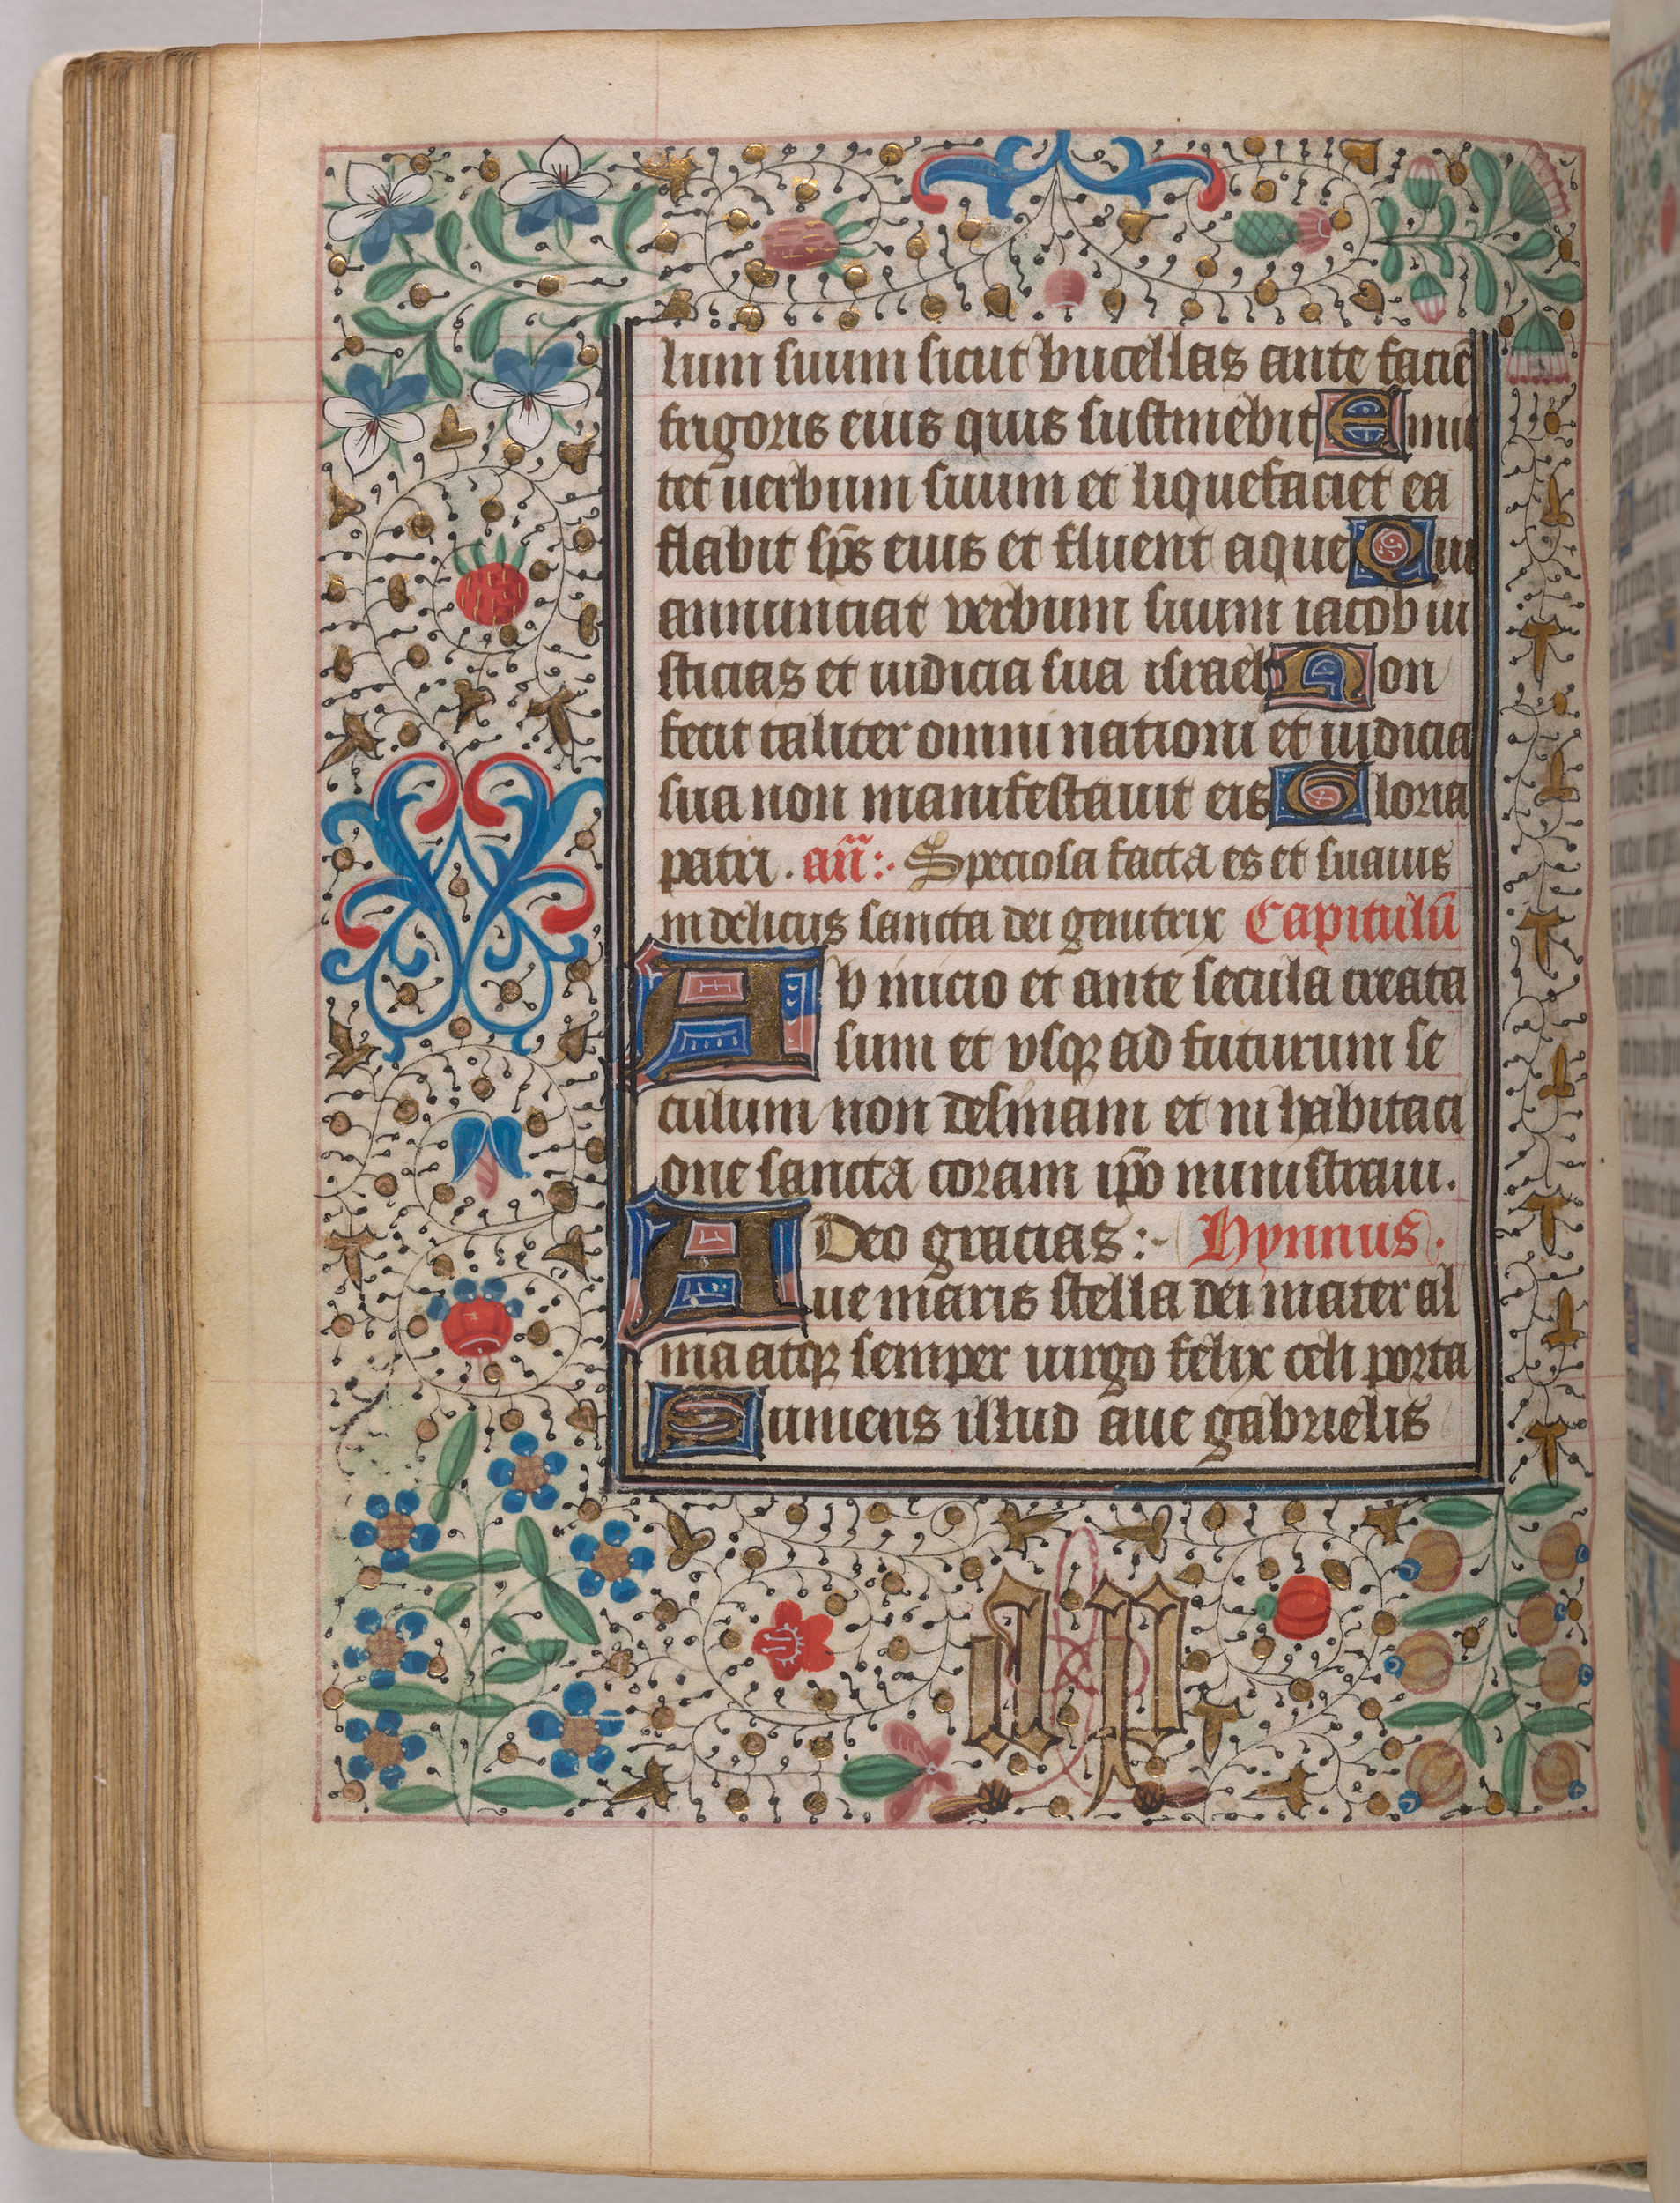 lum suum sicut bucellas ante faciē
frigoris eius quis sustinebit Emit
tet uerbum suum et liquefaciet ea
flabit sp̄s eius et fluent aque Qui
annunciat verbum suum iacob iu
sticias et iudicia sua israel Non
fecit taliter omni nationi et iudicia
sua non manifestauit eis Gloria
patri . añ: Speciosa facta es et suauis
in deliciis sancta dei genitrix Capitulū
Ab inicio et ante secula creata
sum et vsqꝫ ad futurum se
culum non desinam et in habitaci
one sancta coram ip̄o ministraui.
Deo gracias :- Hymnus .
Aue maris stella dei mater al
ma atqꝫ semper uirgo felix celi porta
Sumens illud aue gabrielis